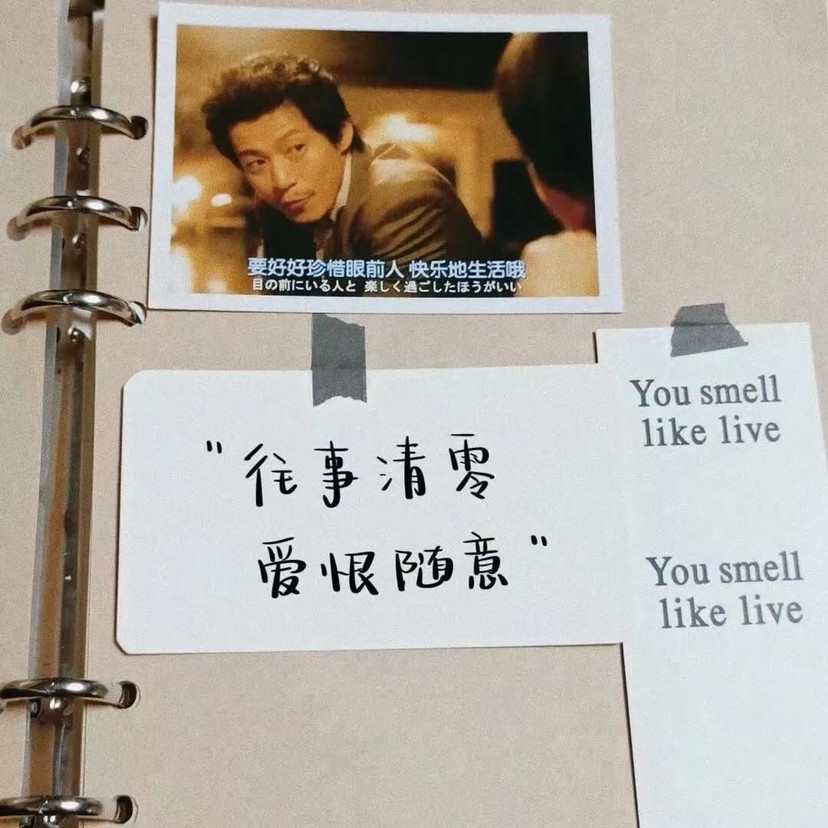 要好好珍惜眼前人 快乐地生活哦
目の前にいる人と 楽しく過ごしたほうがいい
"往事清零
爱恨随意"
You smell
like live
You smell
like live